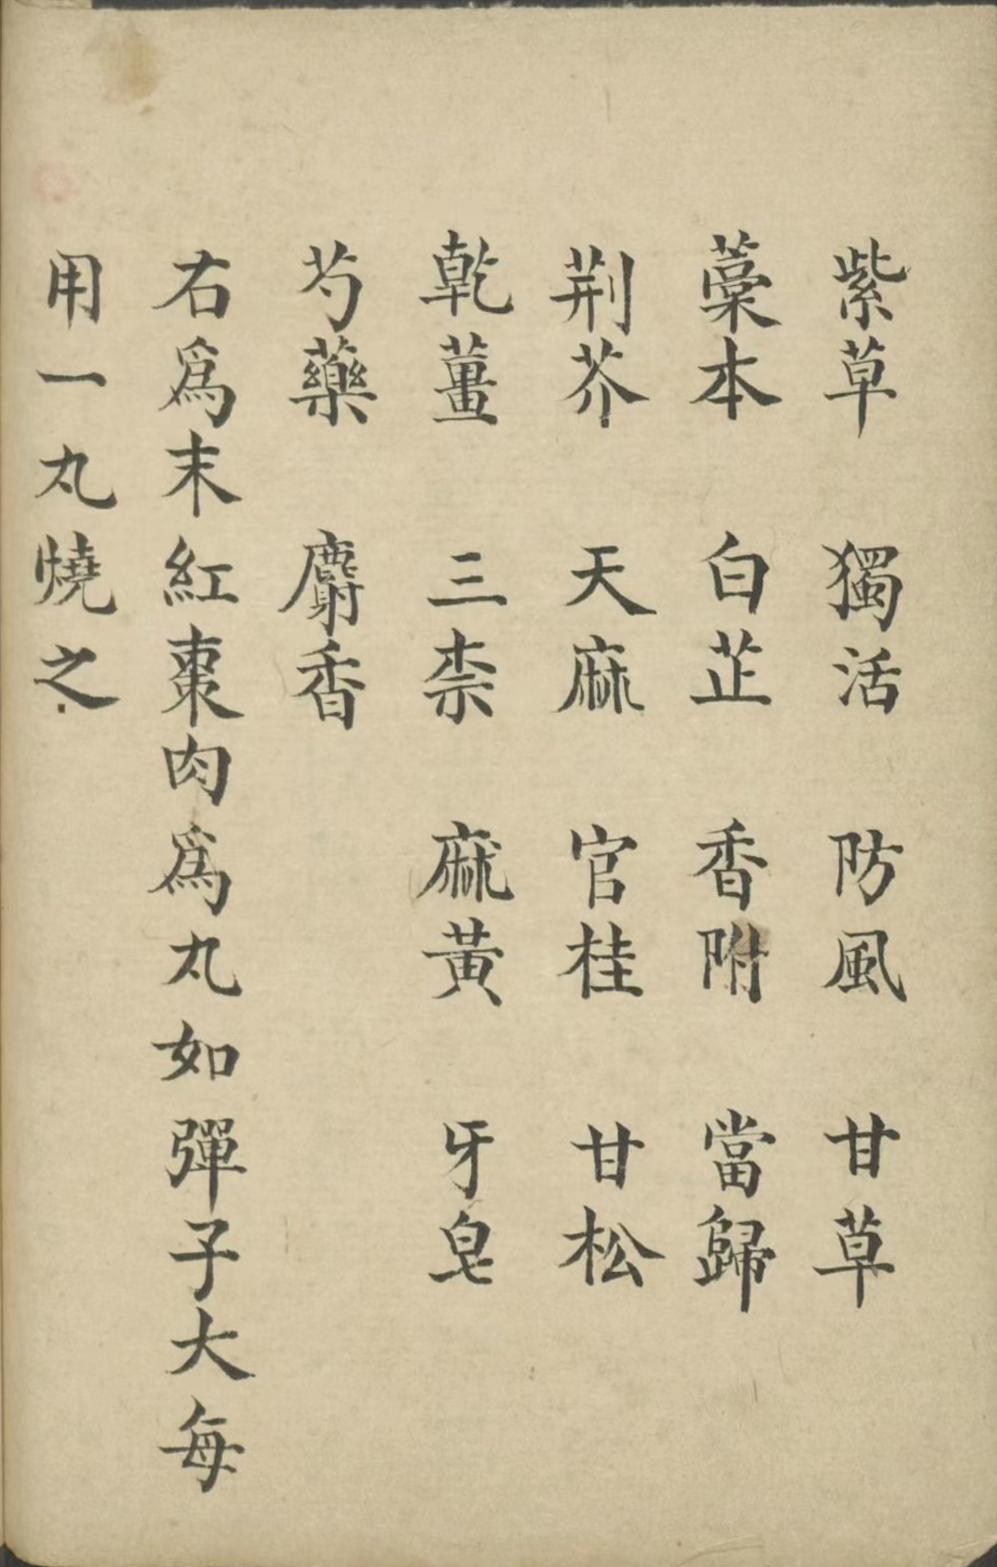 紫草 獨活 防風 甘草
藁本 白芷 香附 當歸
荆芥 天麻 官桂 甘松
乾薑 三柰 麻黃 牙皂
芍藥 麝香
右爲末紅棗肉爲丸如彈子大每
用一丸燒之